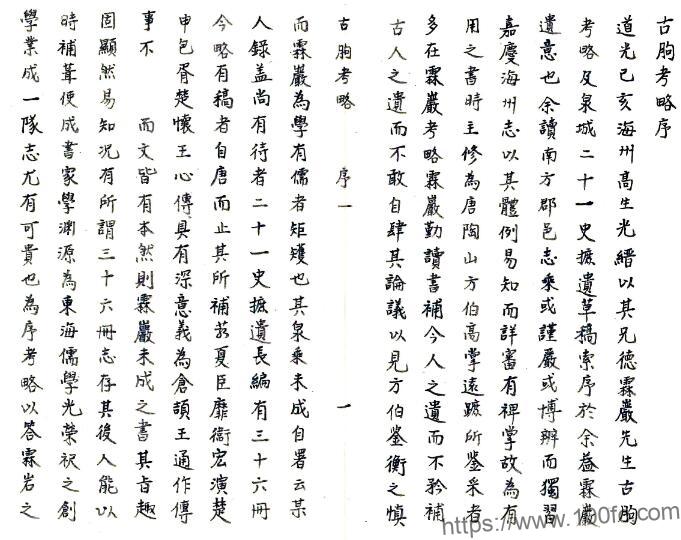 古朐考略序
道光己亥海州高生光縉以其兄德霖巖先生古朐
考略及泉城二十一史摭遺草稿索序於余蓋霖巖
遺意也余讀南方郡邑志乘或謹嚴或博辨而獨習
嘉慶海州志以其體例易知而詳審有裨掌故為有
用之書時主修為唐陶山方伯高掌遠蹠所鉴采者
多在霖巖考略霖巖勤讀書補今人之遺而不矜補
古人之遺而不敢自肆其論議以見方伯鉴衡之慎
古朐考略 序一 一
而霖巖為學有儒者矩矱也其泉乘未成自署云某
人錄盖尚有待者二十一史摭遺長編有三十六冊
今略有稿者自唐而止其所補若夏臣靡衞宏演楚
申包胥楚懷王心傳具有深意義為倉頡王通作傳
事不 而文皆有本然則霖巖未成之書其旨趣
固顯然易知况有所謂三十六冊志存其後人能以
時補葺便成書家學渊源為東海儒學光榮祝之創
學業成一隊志尤有可貴也為序考略以答霖岩之
https://www.100fd.com